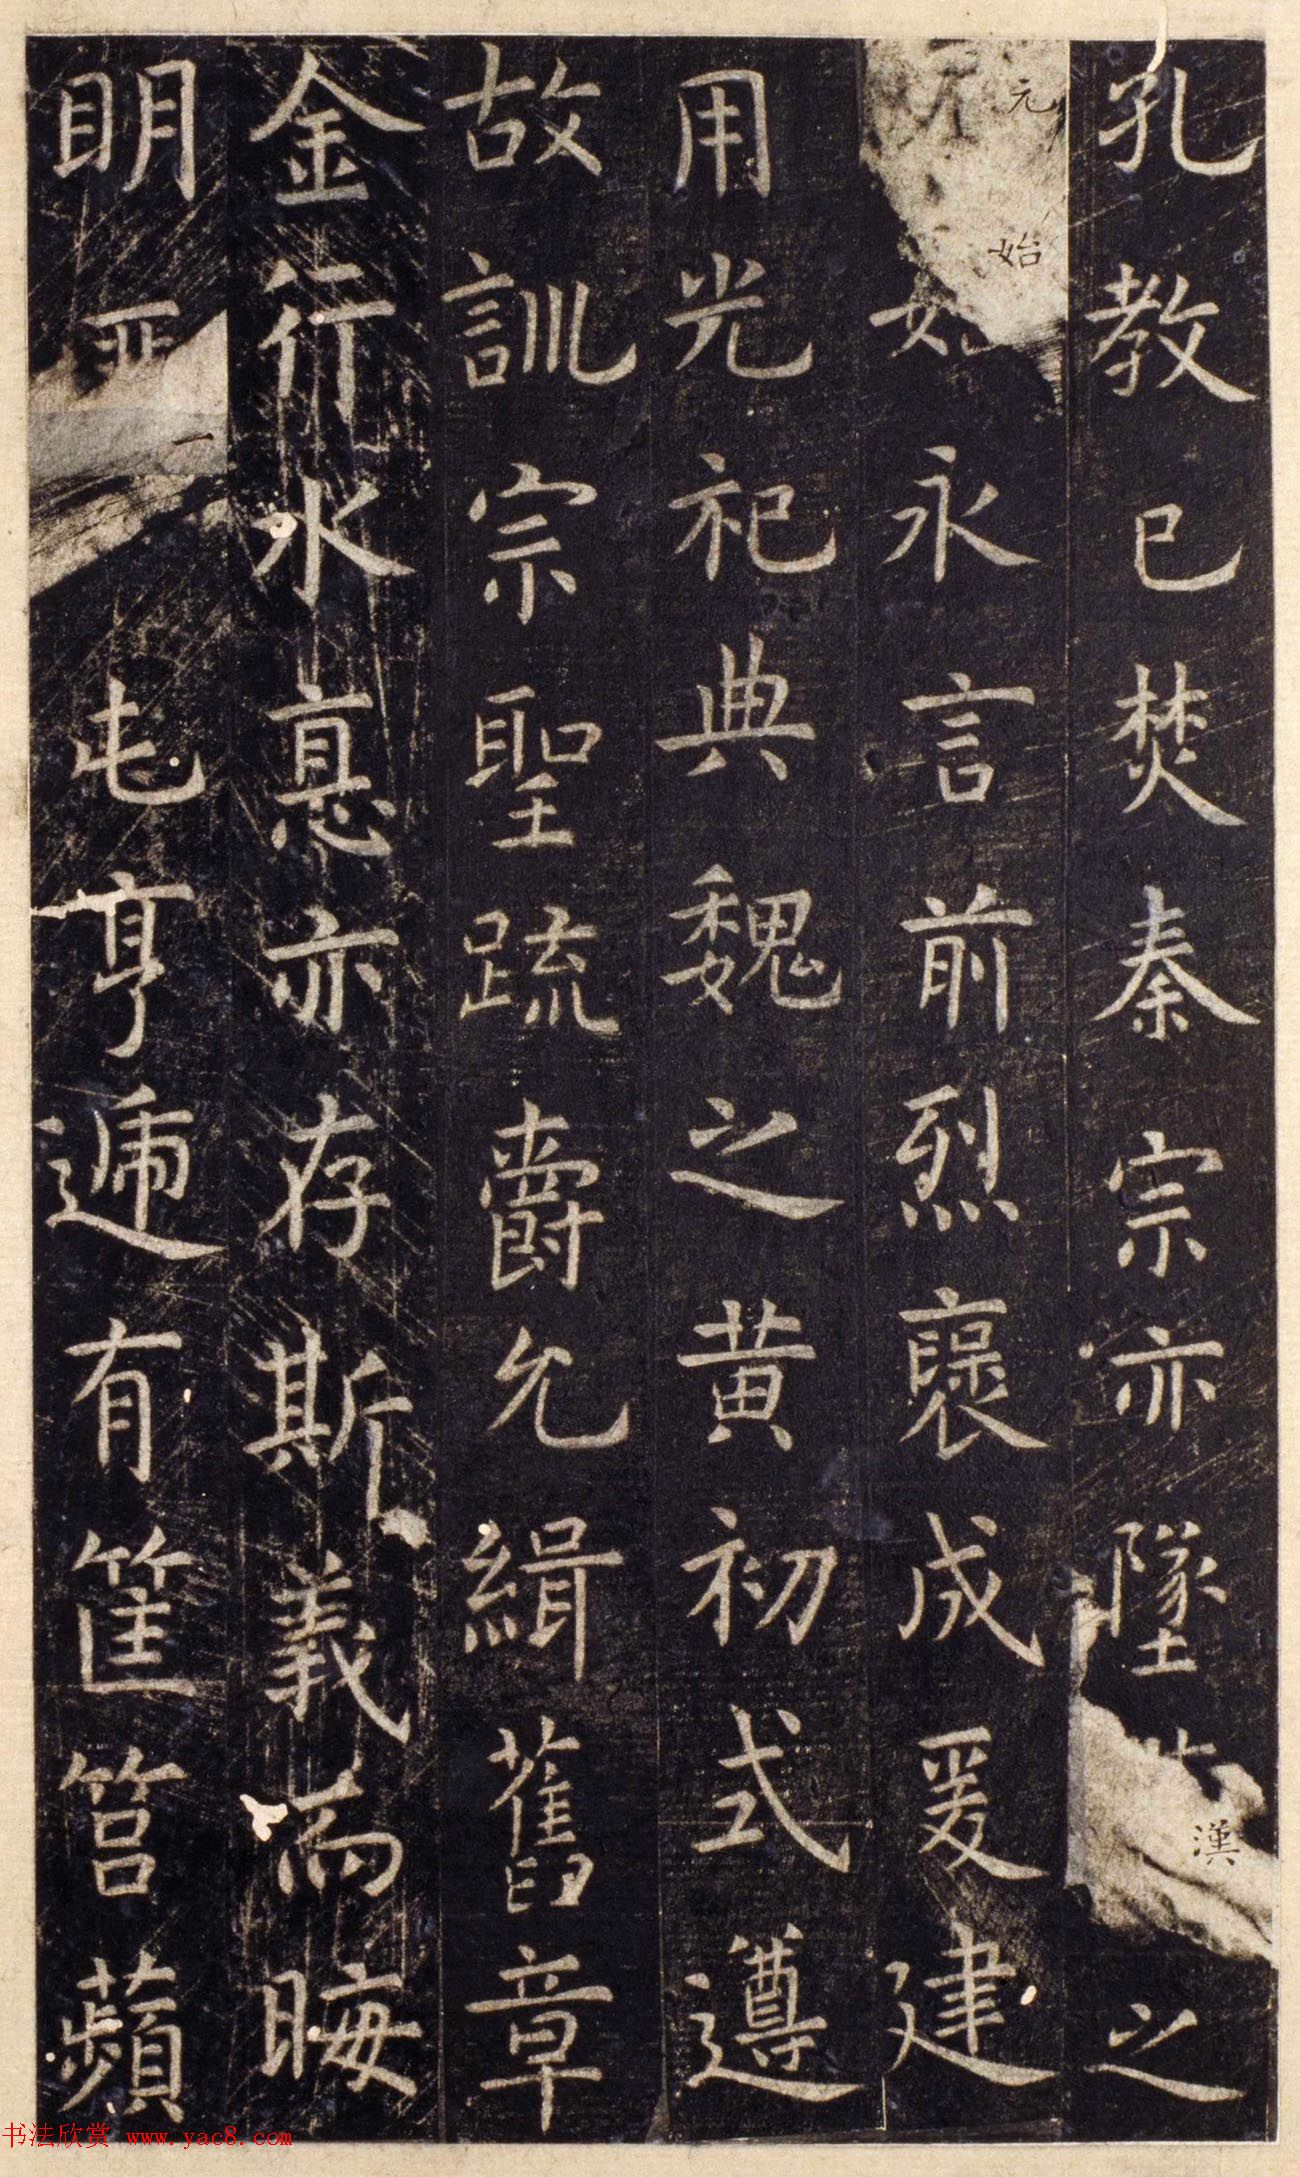 孔教已焚秦宗亦墜漢之
元始永言前烈褒成爰建
用光祀典魏之黄初式遵
故訓宗聖疏爵允緝舊章
金行水悳亦存斯義而晦
明匪一屯亨遞有筐筥蘋
书法欣赏 www.yac8.com